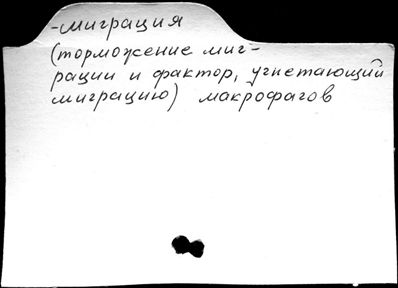 -миграция
(торможение миг-
рации и фактор, угнетающий
миграцию) макрофагов